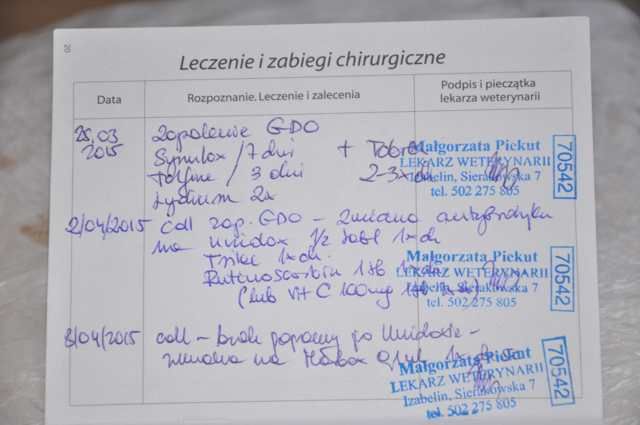 20
Leczenie i zabiegi chirurgiczne
Data
Rozpoznanie. Leczenie i zalecenia
Podpis i pieczątka
lekarza weterynarii
25.03
2015
zapalenie GDO
Synulox / 7 dni + Tobrex
Tolfine / 3 dni 2-3x dz
Lydium 2x
Małgorzata Piekut
LEKARZ WETERYNARII
Izabelin, Sierakowska 7
tel. 502 275 805
70542
2/04/2015
cdl zap. GDO - zmiana antybiotyku
na Unidox 1/2 tabl 1xdz
1xdz
Rutinoscorbin 1tb
(lub Vit C 100mg 1tb
Małgorzata Piekut
LEKARZ WETERYNARII
Izabelin, Sierakowska 7
tel. 502 275 805
70542
8/04/2015
cdl - brak poprawy po Unidoxie -
zmiana na Marbox
Małgorzata Piekut
LEKARZ WETERYNARII
Izabelin, Sierakowska 7
tel. 502 275 805
70542